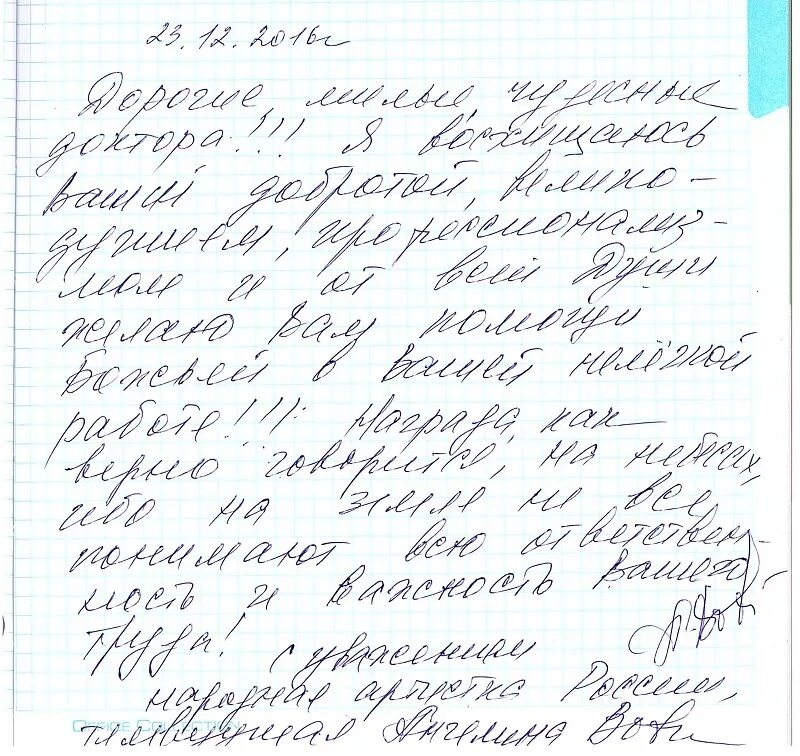 23.12.2016г
Дорогие, милые, чудесные
доктора!!! Я восхищаюсь
Вашей добротой, велико-
душием, професcионализ-
мом и от всей Души
желаю Вам помощи
Божьей в Вашей нелёгкой
работе!!! Награда, как
верно говорится, на небесах,
ибо на земле не все
понимают всю ответствен-
ность и важность Вашего
труда!
С уважением
народная артистка России,
Ангелина Вовк
OFFICE COLLECTION